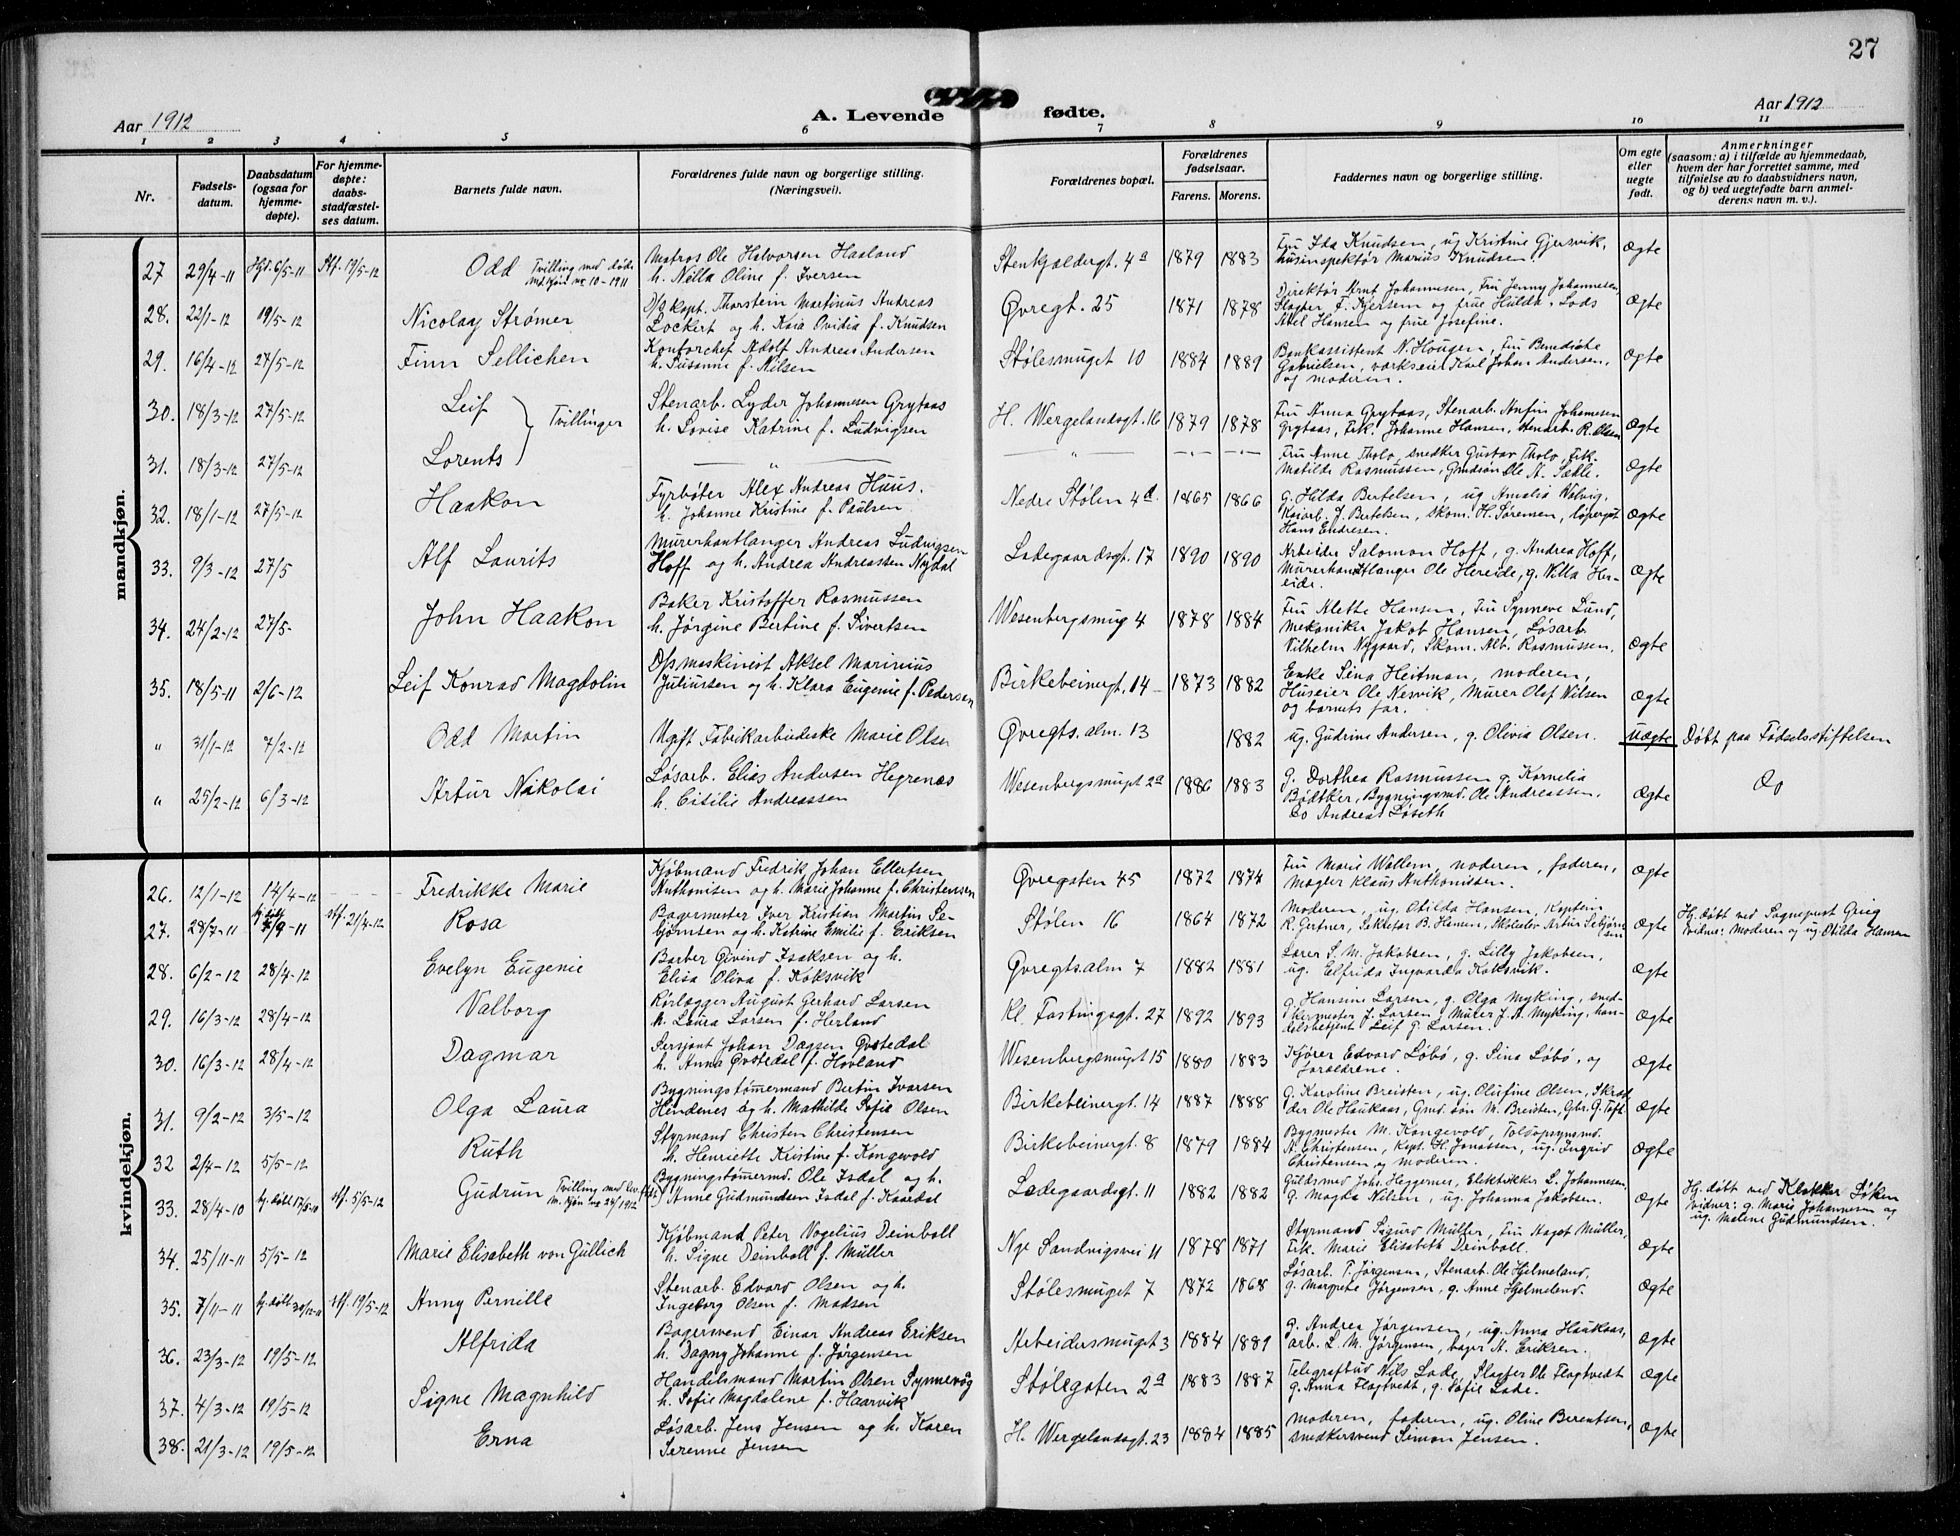 27
Aar 1912
A. Levende fødte.
Aar 1912
1 2 3 4 5 6 7 8 9 10 11
Nr.
Fødsels-datum.
Daabsdatum (ogsaa for hjemme-døpte).
For hjemme-døpte: daabs-stadfæstel-ses datum.
Barnets fulde navn.
Forældrenes fulde navn og borgerlige stilling. (Næringsvei).
Forældrenes bopæl.
Forældrenes fødselsaar.
Farens. Morens.
Faddernes navn og borgerlige stilling.
Om egte eller uegte født.
Anmerkninger (saasom: a) i tilfælde av hjemmedaab, hvem der har forrettet samme, med tilføielse av to daabsvidners navn, og b) ved uegtefødte barn anmel-derens navn m. v.).
mandkjøn.
27 29/4-11 Hjd. 6/5-11 Stf. 19/5-12 Odd Tvilling med døde m.kjøn nr 10-1911
Matros Ole Halvorsen Haaland
h. Nilla Oline f. Iversen
Stenkjeldergt. 4a 1879 1883
Fru Ida Knudsen, ug Kristine Gjersvik,
husinspektør Marius Knudsen
Ægte
28. 22/1-12 19/5-12 Nicolay Strømer
D/s kapt. Thorstein Martinus Andreas
Lockert og h. Kaia Ovidia f. Knudsen
Øvregt. 25 1871 1878
Direktør Arnt Johannesen, Fru Jenny Johannesen,
Slagter F. Kjersem og frue Hulda, Lods
Axel Hansen og frue Josefine.
Ægte
29. 16/4-12 27/5-12 Finn Sellichen
Kontorchef Adolf Andreas Andersen
h. Susanne f. Nilsen
Stølesmuget 10 1884 1889
Bankassistent N. Hougen, Fru Benedicte
Gabrielsen, værkseier Karl Johan Andersen,
og moderen.
Ægte
30. 18/3-12 27/5-12 Leif Tvillinger
Stenarb. Lyder Johannesen Grytaas
h. Lovise Katrine f. Ludvigsen
H. Wergelandsgt. 16 1879 1878
Fru Anna Grytaas, Stenarb. Anfin Johannesen
Grytaas, Frk. Johanne Hansen, stenarb. R. Olsen
Ægte
31. 18/3-12 27/5-12 Lorents
— " —
Fru Anne Tholo, snedker Gustav Tholo, Frk.
Matilde Rasmussen, Gmdsøn Ole A. Sække.
Ægte
32. 18/1-12 27/5-12 Haakon
Fyrbøter Alex Andreas Huus.
h. Johanne Kristine f. Paulsen
Nedre Stølen 4d. 1865 1866
g. Hilda Bertelsen, ug Amalia Valvig,
Kaiarb. J. Bertelsen, skom. H. Sørensen, løpergut
Hans Endresen.
Ægte
33. 9/3-12 27/5 Alf Laurits
Murerhantlanger Andreas Ludvigsen
Hoff og h. Andrea Andreassen Nydal
Ladegaardsgt. 17 1890 1890
Arbeider Salomon Hoff, g. Andrea Hoff,
Murerhantlanger Ole Hereide, g. Villa Her-
eide.
Ægte
34. 24/2-12 27/5- John Haakon
Baker Kristoffer Rasmussen
h. Jørgine Bertine f. Sivertsen
Wesenbergsmug 4 1878 1884
Fru Alette Hansen, Fru Synneve Lund,
mekaniker Jakob Hansen, Løsarb.
Vilhelm Nygaard, Skom. Alb. Rasmussen.
Ægte
35. 18/5-11 2/6-12 Leif Konrad Magdolin
D/s maskinist Aksel Marinius
Juliussen og h. Klara Eugenie f. Pedersen
Birkebeinergt. 14 1873 1882
Enke Sina Heitman, moderen,
Huseier Ole Nesvik, Murer Olaf Nilsen
og barnets far.
Ægte
" 31/1-12 7/2-12 Odd Martin
Ugift Fabrikarbeiderske Marie Olsen
Øvregts. alm. 13 1882
ug. Gudrine Andersen, g. Olivia Olsen.
Uægte
Døbt paa Fødselsstiftelsen
" 25/2-12 6/3-12 Artur Nikolai
Løsarb. Elias Andersen Hegrenæs
h. Cisilie Andreassen
Wesenbergsmuget 2a 1886 1883
g. Dorthea Rasmussen g. Kornelia
Bødtker, Bygningssmd. Ole Andreassen,
Do Andreas Løseth
Ægte
Do
kvindekjøn.
26. 12/1-12 14/4-12 Fredrikke Marie
Kjøbmand Fredrik Johan Ellertsen
Anthonisen og h. Marie Johanne f. Christensen
Øvregaten 45 1872 1874
Fru Marie Wallem, moderen, faderen,
Mægler Klaus Anthonissen.
Ægte
27. 28/7-11 hj. døbt 7/9-11 Stf. 21/4-12 Rosa
Bagermester Iver Kristian Martin Se-
bjørnsen og h. Katrine Emilie f. Eriksen
Stølen 16 1864 1872
Moderen, ug. Otilda Hansen, Kaptein
R. Gertner, Sekretær B. Hansen, Skoleelev Artur Sebjørnsen
Ægte
Hj. døbt ved Sogneprest Grieg
vidner: Moderen og ug Otilda Hansen
28. 6/2-12 28/4-12 Evelyn Eugenie
Barber Øivind Isaksen og h.
Elisa Oliva f. Koksvik
Øvregts. alm 7 1882 1881
Lærer S. M. Jakobsen, g. Lilly Jakobsen,
ug. Elfrida Ingvarda Koksvik.
Ægte
29. 16/3-12 28/4-12 Valborg
Rørlægger August Gerhard Larsen
h. Laura Larsen f. Herland
Kl. Fastingsgt. 27 1892 1893
g. Hansine Larsen, g. Olga Myking, sned-
kermester J. Larsen, Murer J. A. Myking, han-
delsbetjent Leif G. Larsen.
Ægte
30. 16/3-12 28/4-12 Dagmar
Sersjant Johan Dagsen Øvstedal
h. Anna Øvstedal f. Hovland
Wesenbergsmuget 15 1880 1883
Kjører Edvard Løbø, g. Sina Løbø, og
foreldrene.
Ægte
31. 9/2-12 3/5-12 Olga Laura
Bygningstømmermand Bertin Ivarsen
Hendenes og h. Mathilde Sofie Olsen
Birkebeinergt. 14 1887 1888
g. Karoline Breisten, ug. Olufine Olsen, Skræd
der Ole Haukaas, Gmd. søn M. Breisten, Gbr. G. Toft
Ægte
32 2/4-12 5/5-12 Ruth
Styrmand Christen Christensen
h. Henriette Kristine f. Kongevold
Birkebeinergt. 8 1879 1884
Bygmester M. Kongevold, Toldopsynsmd.
A. Christensen, Kapt. H. Jonassen, ug. Ingrid
Christensen og moderen.
Ægte
33. 28/4-10 hj. døbt 17/5-10 Stf. 5/5-12 Gudrun
Bygningstømermd. Ole Isdal og h.
Anne Gudmundsen Isdal f. Kaardal
Ladegaardsgt. 11 1882 1882
Guldsmed Joh. Heggernes, Elektrikker L. Johannesen,
g. Magda Nilsen, ug. Johanna Jakobsen.
Ægte
Hj. døbt ved Klokker Løken
vidner: g. Marie Johannesen og
ug. Malene Gudmundsen.
34. 25/11-11 5/5-12 Marie Elisabeth von Gullich
Kjøbmand Peter Vogelius Deinboll
h. Signe Deinboll f. Müller
Nye Sandvigsvei 11 1878 1871
Styrmand Sigurd Müller, Fru Hagst Müller,
Frk. Marie Elisabeth Deinboll.
Ægte
35. 7/11-11 hj. døbt 30/12-11 Stf. 19/5-12 Anny Pernille
Stenarb. Edvard Olsen og h.
Ingeborg Olsen f. Madsen
Stølesmuget 7 1872 1868
Løsarb. T. Jørgensen, Stenarb. Ole Hjelmeland,
g. Margrete Jørgensen, g. Anne Hjelmeland.
Ægte
36. 23/3-12 19/5-12 Alfrida
Bagersvend Einar Andreas Eriksen
h. Dagny Johanne f. Jørgensen
Arbeidersmuget 3 1884 1881
g. Andrea Jørgensen, ug. Anna Haukaas,
arb. L. M. Jørgensen, bager A. Eriksen.
Ægte
37. 4/3-12 19/5-12 Signe Magnhild
Handelsmand Martin Olsen Synnevåg
h. Sofie Magdalene f. Haarvik
Stølegaten 2a 1883 1887
Telegrafbud Nils Lade, Slagter Ole Flagtvedt
g. Anna Flagtvedt, g. Sofie Lade.
Ægte
38. 21/3-12 19/5-12 Erna
Løsarb. Jens Jensen og h. Karen
Serenne Jensen
H. Wergelandsgt. 23 1884 1885
Moderen, faderen, ug. Oline Berentsen,
snedkersvend Simon Jensen.
Ægte